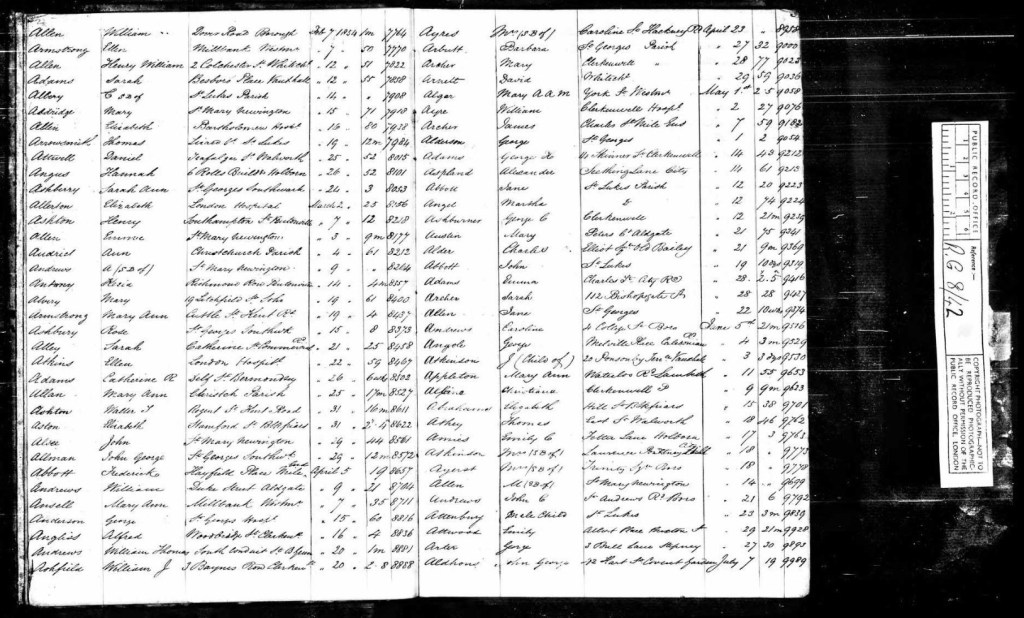 Allen William " Dover Road Borough Feb 7 1854 1m 7764
Armstrong Ellen Millbank Westmr " 7 " 50 7770
Allen Henry William 2 Colchester St Whitechl " 12 " 51 7822
Adams Sarah Besboro Place Vauxhall " 12 " 55 7858
Albery C SB of St Lukes Parish " 14 " " 7908
Aldridge Mary St Mary Newington " 15 " 71 7918
Allen Elizabeth Bartholomew Hospl " 16 " 80 7928
Arrowsmith Thomas St Lukes " 19 " 12m 7984
Attwell Daniel Trafalgar St Walworth " 25 " 52 8015
Angus Hannah 6 Rolls Builds Holborn " 26 " 52 8101
Ashberry Sarah Ann St Georges Southwark " 24 " 3 8053
Allerton Elizabeth London Hospital March 2 " 23 8156
Ashton Henry Southampton St Pentonville " 7 " 12 8218
Allen Emma St Mary Newington " 3 " 9m 8177
Audrict Ann Christchurch Parish " 4 " 61 8212
Andrews A (SB of) St Mary Newington " 9 " " 8284
Antony Kezia Richmond Row " 14 " 8357
Alvery Mary 19 Litchfield St Soho " 19 " 61 8400
Armstrong Mary Ann Castle St Kent Rd " 19 " 4 8437
Ashbury Rose St Georges Southwk " 15 " 8 8373
Alley Sarah Catherine St " 21 " 25 8458
Atkins Ellen London Hospitl " 22 " 59 8467
Adams Catherine R Bermondsey " 26 " 8503
Allan Mary Ann Christch Parish " 25 " 17m 8527
Ashton Walter T Regent St Kent Road " 31 " 16m 8611
Aston Elizabeth Stamford St Blkfriars " 31 " 8622
Alvee John St Mary Newington " 29 " 44 8561
Allman John George St Georges Southwk " 29 " 12m 8572
Abbott Frederick Hayfield Place Mile End April 5 19 8657
Andrews William Duke Street Aldgate " 9 " 21 8704
Ansell Mary Ann Millbank Westmr " 7 " 35 8711
Anderson George St Georges Hospl " 15 " 60 8816
Angliss Alfred Woodbridge St Clerkenl " 16 " 4 8836
Andrews William Thomas South Conduit St B Green " 20 " 1m 8881
Ashfield William J 3 Baynes Row Clerkenl " 20 " 2.8 8888
Ayres Mrs (SB of) Caroline St Hackney Rd April 23 " " 8958
Arbutt Barbara St Georges Parish " 27 32 9000
Archer Mary Clerkenwell " " 28 77 9023
Arnett David Whitecht " 29 59 9036
Algar Mary A A M York St Westmr May 1st 2.5 9058
Ayre William Clerkenwell Hospl " 2 27 9076
Archer James Charles St Mile End " 7 59 9182
Alderson George St Georges " 1 2 9054
Adams George H 41 Skinner St Clerkenwell " 14 43 9212
Aspland Alexander Seething Lane City " 14 61 9213
Abbott Jane St Lukes Parish " 12 20 9223
Angel Martha Do " 12 74 9224
Ashburner George C Clerkenwell " 12 21m 9229
Austin Mary Peters Ct Aldgate " 21 75 9341
Alder Charles Elliot Old Bailey " 21 9m 9369
Abbott John St Lukes " 19 10 dys 9319
Adams Emma Charles St City Rd " 28 2.5 9416
Archer Sarah 112 Bishopsgate St " 28 28 9427
Allen Jane St Georges " 22 10 9374
Andrews Caroline 4 College St Boro June 5th 21m 9516
Angole George Melville Place " 4 3m 9529
Atkindon J (Child of) 20 Ponsonby Terr Vauxhall " 3 3 dys 9530
Appleton Mary Ann Waterloo Rd Lambeth " 11 55 9653
Christiana Clerkenwell P " 9 9m 9623
Abrahams Elizabeth Hill St Blkfriars " 15 38 9701
Athey Thomas East St Walworth " 18 46 9762
Amies Emily C Fetter Lane Holborn " 17 3 9763
Atkindon Mrs (SB of) Lawrence " 18 " 9773
Ayerst Mrs (SB of) Trinity Sqr Boro " 18 " 9778
Allen M (SB of) St Mary Newington " 14 " 9699
Andrews John C St Andrews Rd Boro " 21 6 9792
Attenbury Male Child St Lukes " 23 3m 9839
Attwood Emily Albert Place Hoxton St " 29 21m 9928
Arter George 3 Mill Lane Stepney " 27 30 9893
Aldhous John George 42 Hart St Covent Garden July 7 19 9989
PUBLIC RECORD OFFICE
1 2 3 4 5 6
Reference:-
R.G 8/12
COPYRIGHT PHOTOGRAPH-NOT TO BE REPRODUCED PHOTOGRAPHICALLY WITHOUT PERMISSION OF THE PUBLIC RECORD OFFICE, LONDON